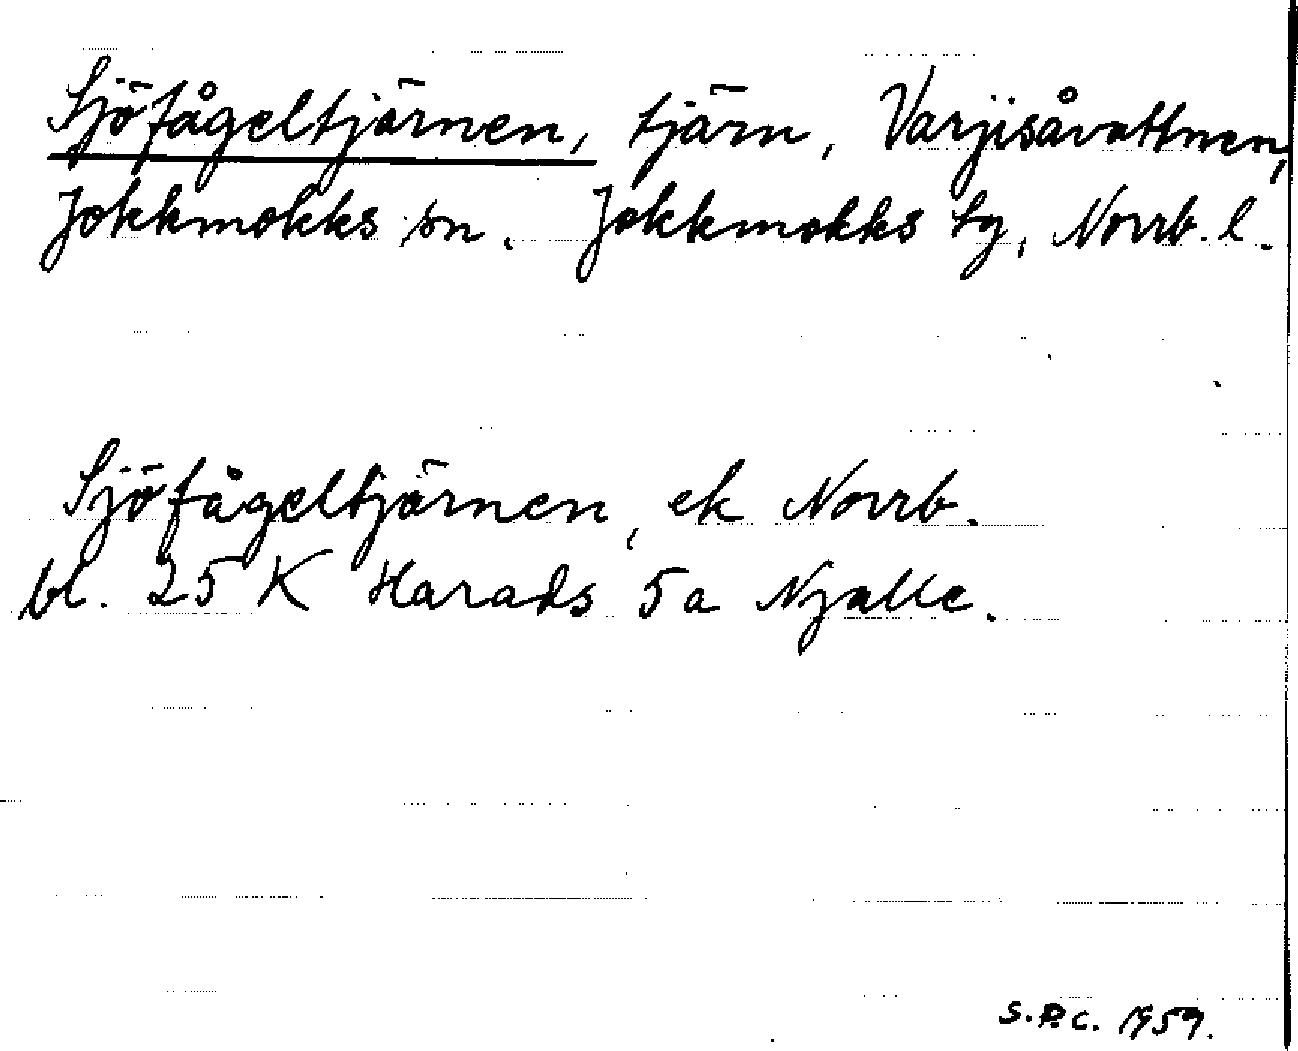 Sjöfågeltjärnen, tjärn, Varjisåvattnen,
Jokkmokks sn. Jokkmokks tg, Norrb. l.
Sjöfågeltjärnen, ek Norrb.
bl. 25 K Harads 5a Njalle.
S.P.C. 1959.